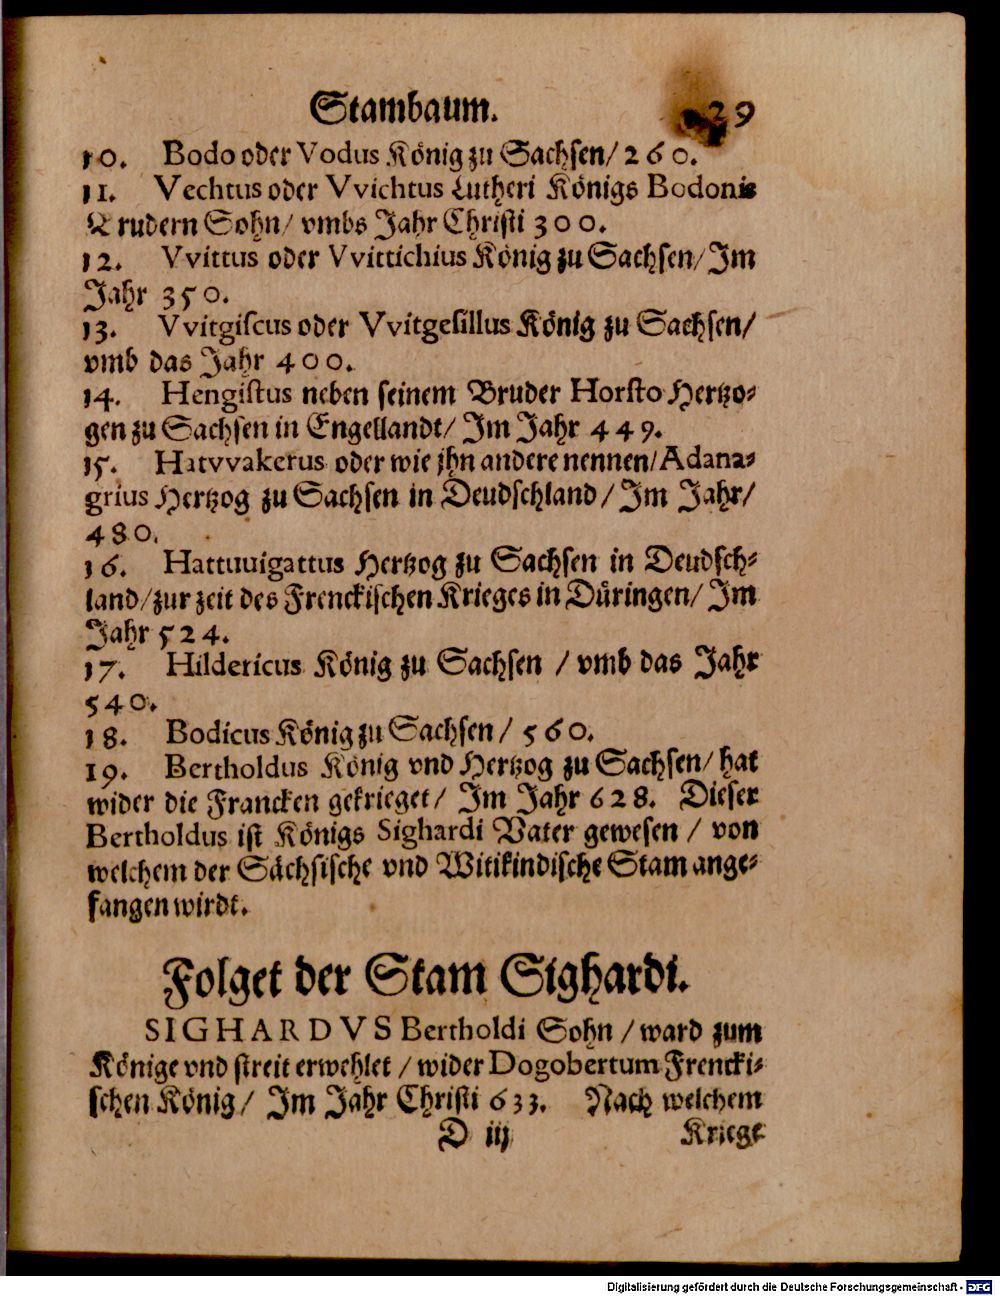 Stambaum. 29
10. Bodo oder Vodus König zu Sachsen/ 260.
11. Vechtus oder Vvichtus Lutheri Königs Bodonis
Brudern Sohn/ vmbs Jahr Christi 300.
12. Vvittus oder Vvittichius König zu Sachsen/ Im
Jahr 350.
13. Vvitgiscus oder Vvitgesillus König zu Sachsen/
vmb das Jahr 400.
14. Hengistus neben seinem Bruder Horsto Hertzo-
gen zu Sachsen in Engellandt/ Im Jahr 449.
15. Hatvvakerus oder wie jhn andere nennen/ Adana-
grius Hertzog zu Sachsen in Deudschland/ Im Jahr/
480.
16. Hattuuigattus Hertzog zu Sachsen in Deudsch-
land/ zur zeit des Frenckischen Krieges in Düringen/ Im
Jahr 524.
17. Hildericus König zu Sachsen / vmb das Jahr
540.
18. Bodicus König zu Sachsen/ 560.
19. Bertholdus König vnd Hertzog zu Sachsen/ hat
wider die Francken gekrieget/ Im Jahr 628. Dieser
Bertholdus ist Königs Sighardi Vater gewesen / von
welchem der Sächsische vnd Witikindische Stam ange-
fangen wirdt.
Folget der Stam Sighardi.
SIGHARDVS Bertholdi Sohn / ward zum
Könige vnd streit erwehlet / wider Dogobertum Frencki-
schen König/ Im Jahr Christi 633. Nach welchem
D iij Kriege
Digitalisierung gefördert durch die Deutsche Forschungsgemeinschaft - DFG